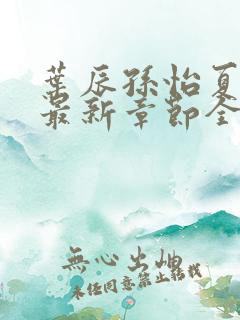 葉辰孫怡夏
最新章節全
無心出岫
未經同意禁止轉載